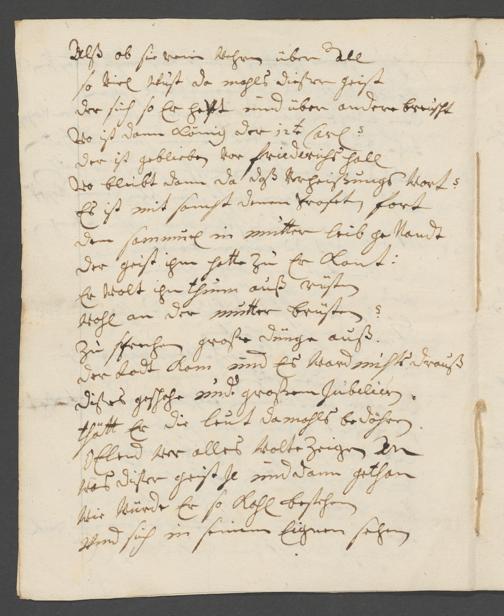 Alß ob sie wein wehren über all
so viel wust da mahls dieser geist
der sich so Er hefft und über andere breißt
Wo ist dann König der 12te Carl?
Der ist geblieben vor friederichshall
Wo bleibt dann da daß Verheißungs wort?
Es ist mit sambt denen Profeten fort
dem sammuel in mutter leib
Der geist ihn hatte zu Er Kant:
Er wolt ihn thun auß rüsten
Wohl an der mutter brüsten?
Zu sprechen große dinge auß.
der todt kam und Es ward nichts drauß
dißes geschahe und großem Jubilieren.
thätt Er die leut damahls bedöhren.
Ellend wer alles wolte zeigen An
Was dißer geist und dann gethan
Wie würde Er so kahl bestehen
Und sich in seinem Eignen sehen